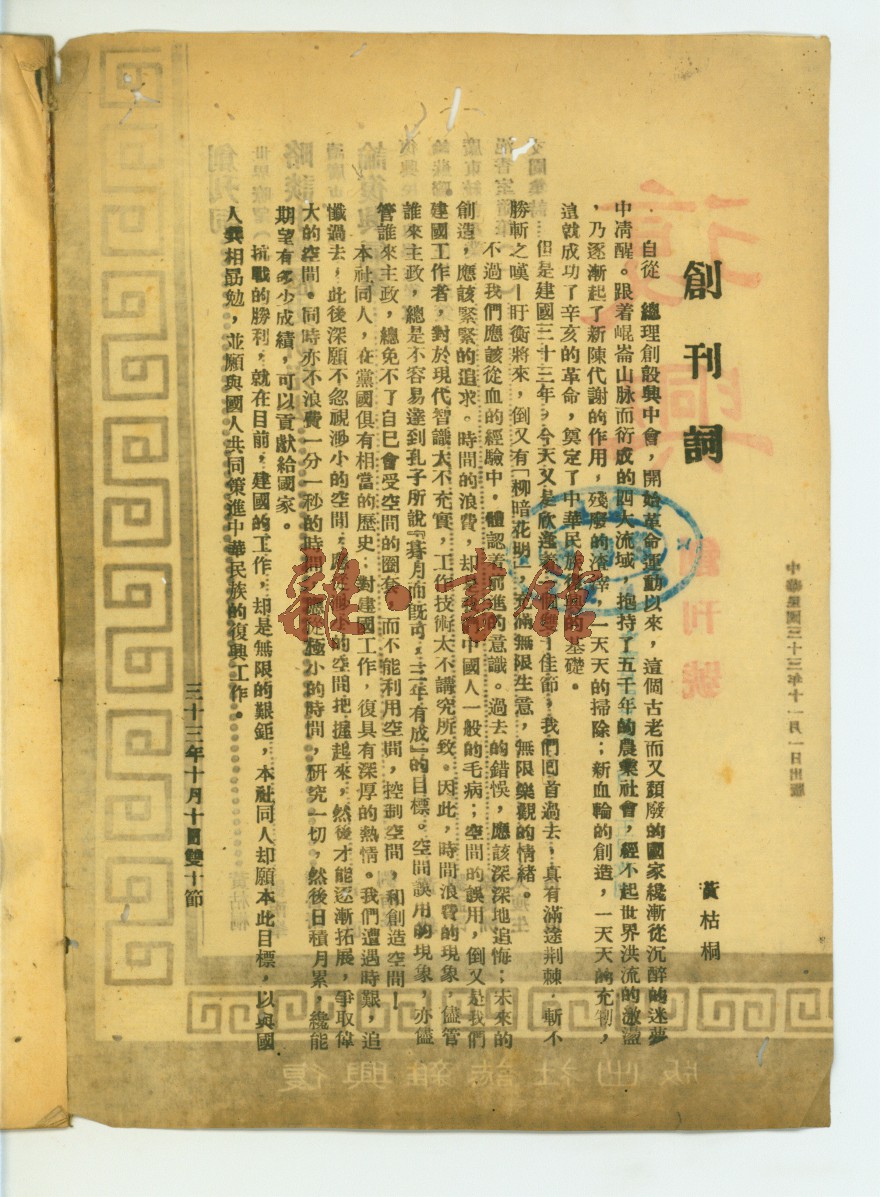 創刊詞
黃枯桐
自從　總理創設興中會，開始革命運動以來，這個古老而又頹廢的國家纔漸從沉醉的迷夢
中清醒。跟着崐崙山脉而衍成的四大流域，抱持了五千年的農業社會，經不起世界洪流的激盪
，乃逐漸起了新陳代謝的作用，殘廢的渣滓，一天天的掃除；新血輪的創造，一天天的充制，
這就成功了辛亥的革命，奠定了中華民族復興的基礎。
但是建國三十三年，今天又是欣逢第一個雙十佳節，我們回首過去，真有滿途荆棘，斬不
勝斬之嘆—盱衡將來，倒又有「柳暗花明」，充滿無限生意，無限樂觀的情緒。
不過我們應該從血的經驗中，體認着前進的意識。過去的錯悞，應該深深地追悔；未來的
創造，應該緊緊的追求。時間的浪費，却是我們中國人一般的毛病；空間的誤用，倒又是我們
建國工作者，對於現代智識太不充實，工作技術太不講究所致。因此，時間浪費的現象，儘管
誰來主政，總是不容易達到孔子所說『朞月而既可，三年有成』的目標。空間誤用的現象，亦儘
管誰來主政，總免不了自己會受空間的圈套，而不能利用空間，控制空間，和創造空間！
本社同人，在黨國俱有相當的歷史；對建國工作，復具有深厚的熱情。我們遭遇時艱，追
懺過去，此後深願不忽視渺小的空間，應從渺小的空間把握起來，然後才能逐漸拓展，爭取偉
大的空間。同時亦不浪費一分一秒的時間，應從極小的時間，研究一切，然後日積月累，纔能
期望有多少成績，可以貢獻給國家。
抗戰的勝利，就在目前，建國的工作，却是無限的艱鉅，本社同人却願本此目標，以與國
人興相勗勉，並願與國人共同策進中華民族的復興工作。
三十三年十月十日雙十節
中華民國三十三年十一月一日出版
創刊號
復興雜誌社出版
雜·書館